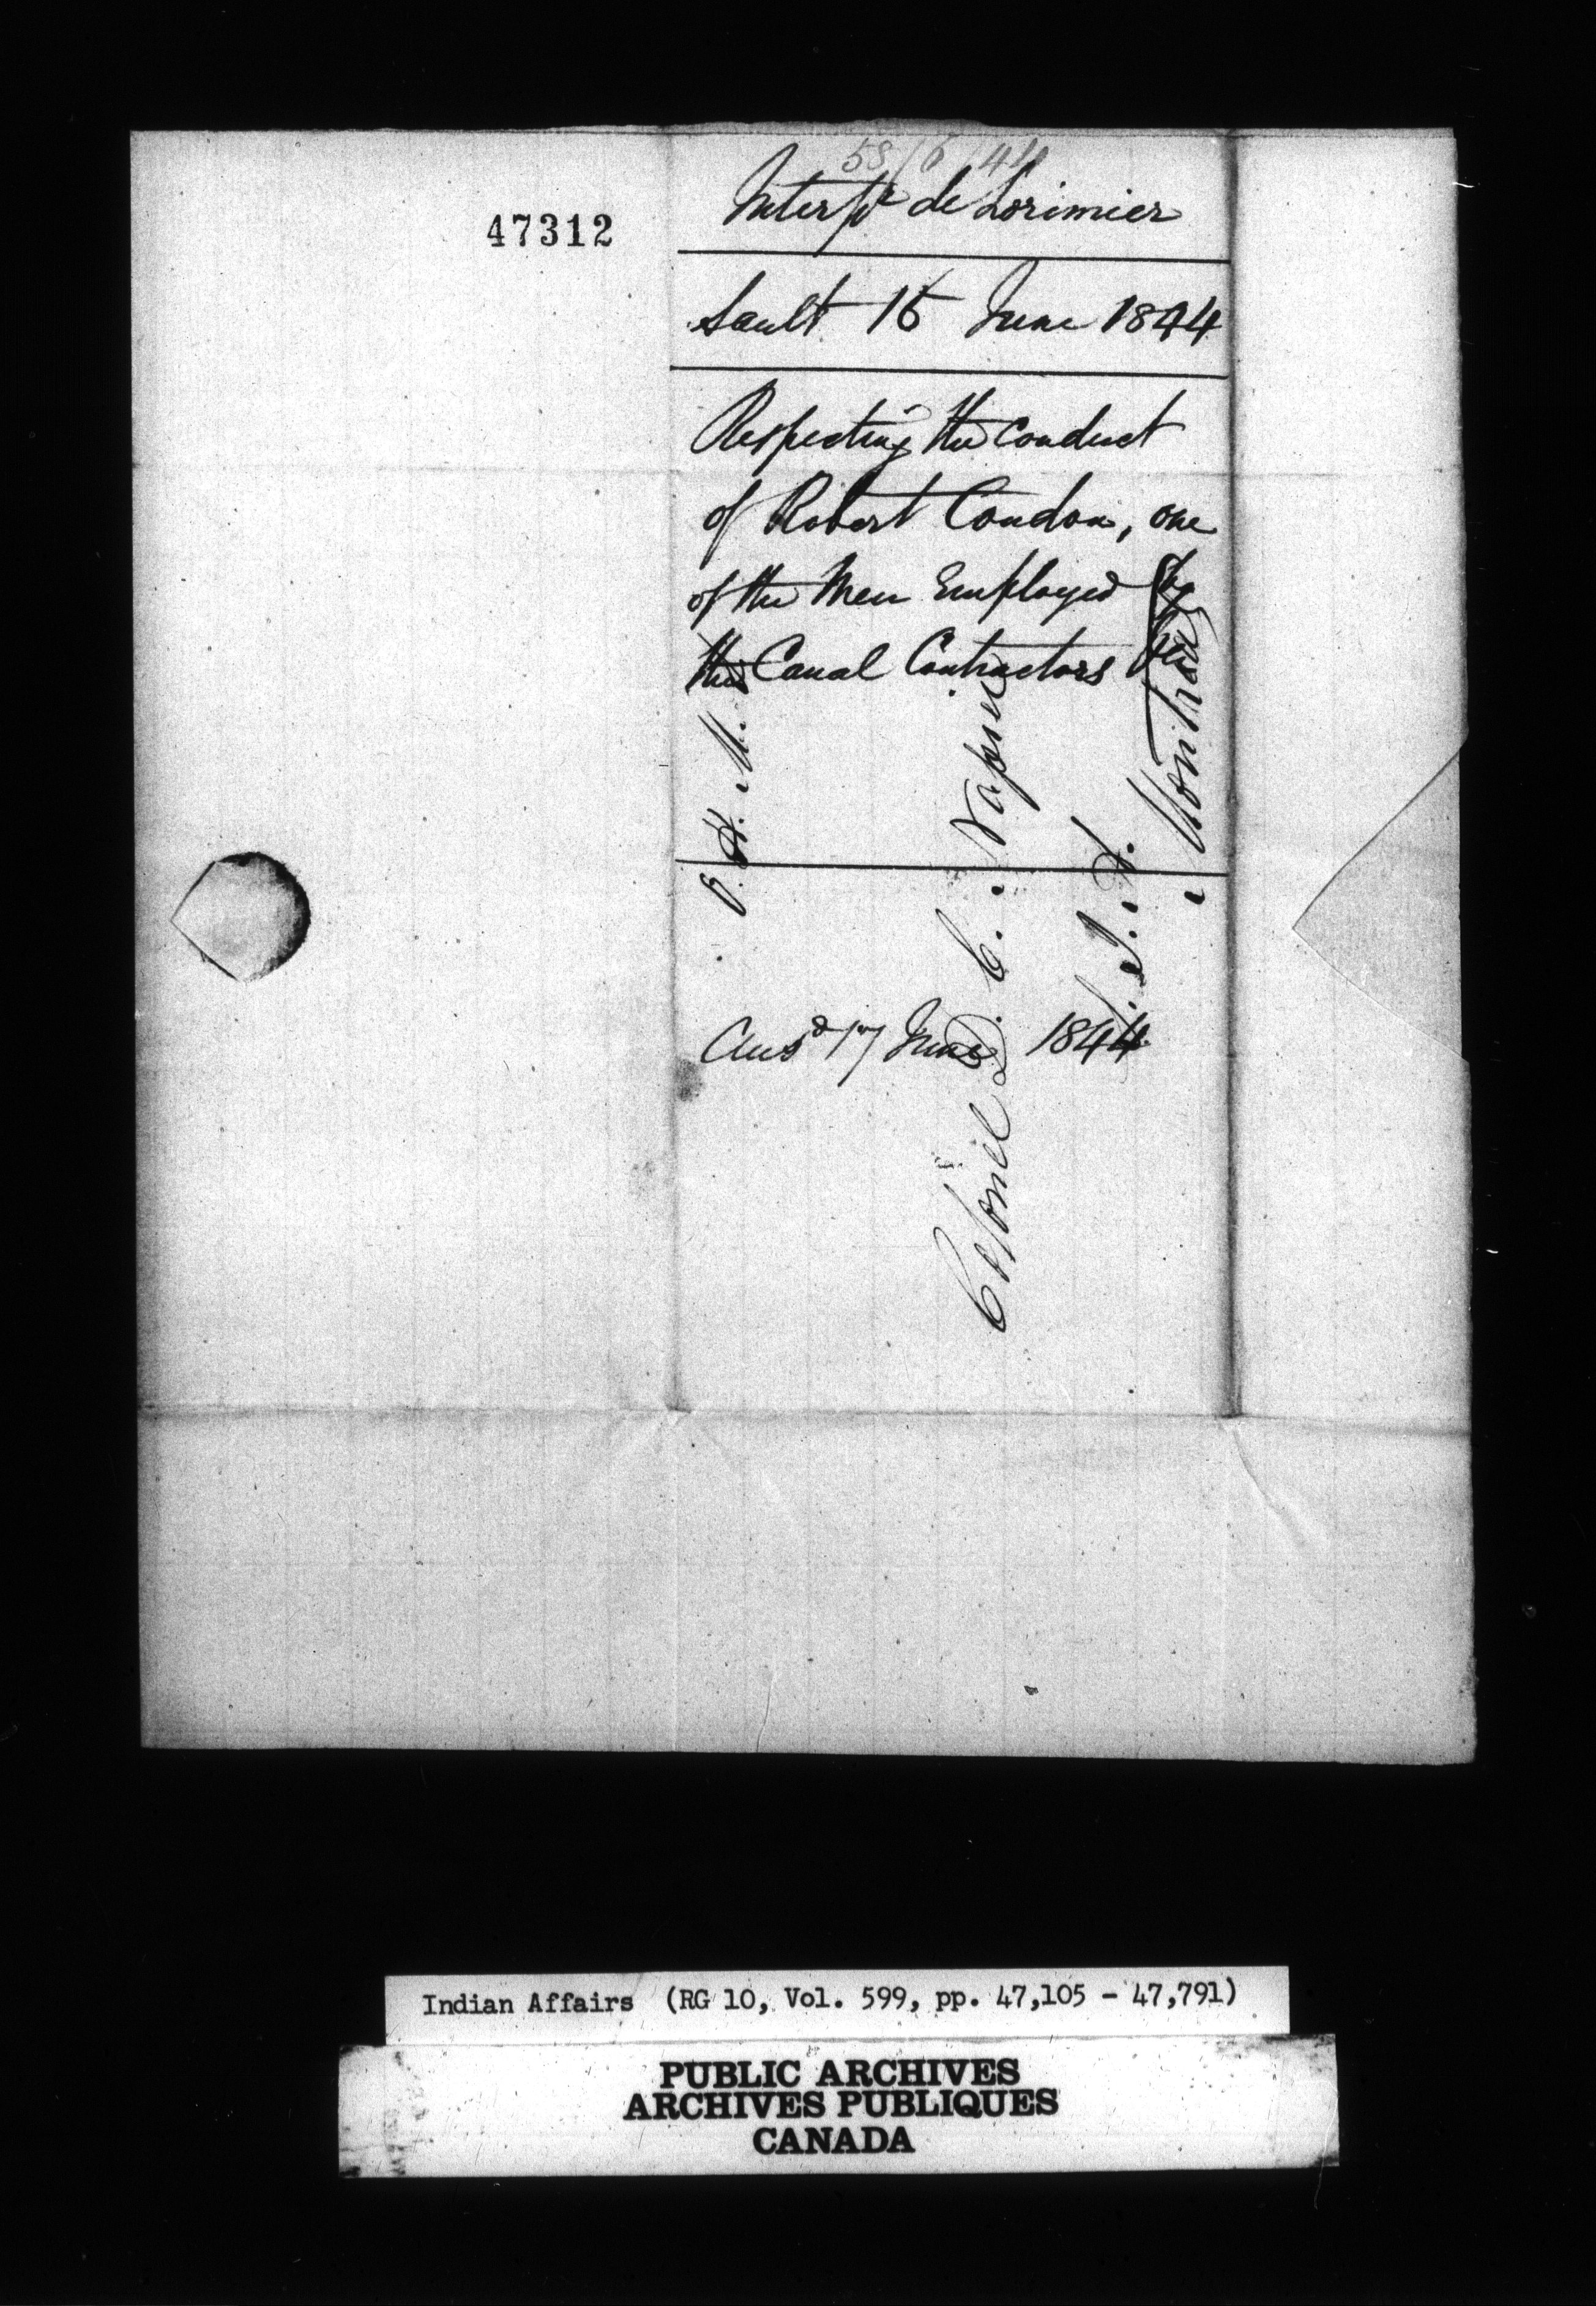 47312
58/6/44
Interpr de Lorimier
Sault 15 June 1844
Respecting the Conduct
of Robert Condon, one
of the Men Employed by
the Canal Contractors
Ansd 17 June 1844.
O. H. M. S
Colonel D. C. Napier
S. I. A.
Montreal
Indian Affairs (RG 10, Vol. 599, pp. 47,105 - 47,791)
PUBLIC ARCHIVES
ARCHIVES PUBLIQUES
CANADA